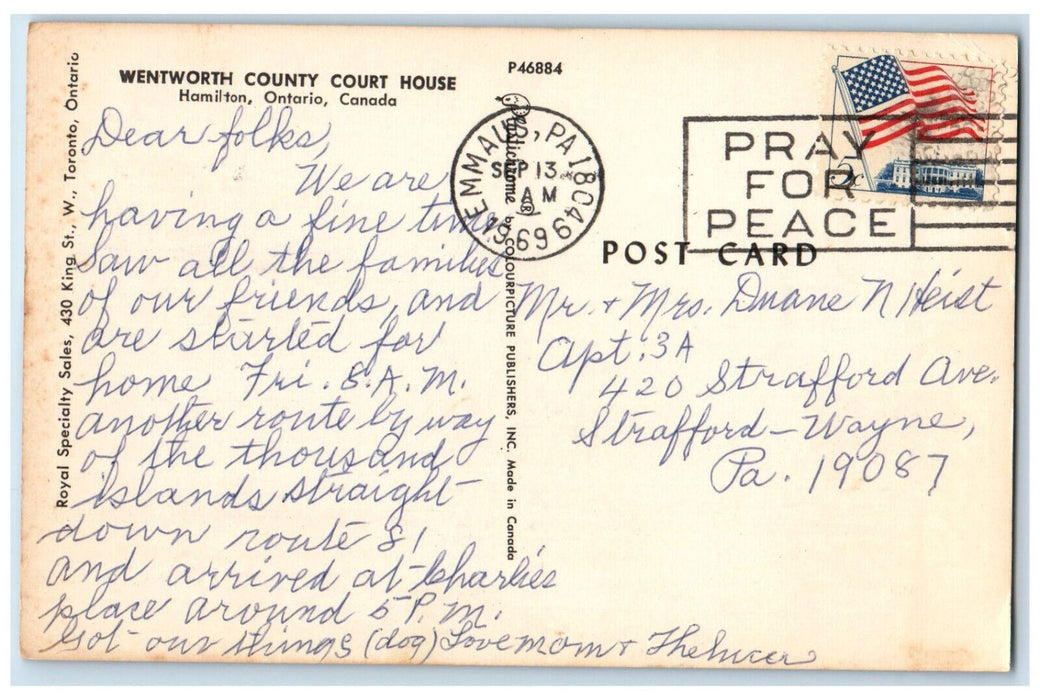 WENTWORTH COUNTY COURT HOUSE
Hamilton, Ontario, Canada
P46884
Royal Specialty Sales, 430 King St., W., Toronto, Ontario
Dear folks,
We are
having a fine time
Saw all the families
of our friends, and
are started for
home Fri. 8.A.M.
another route by way
of the thousand
islands straight
down route 81
and arrived at Charlie's
place around 5 P.M.
Got our things (dog) Love Mom +
Plastichrome ® by COLOURPICTURE PUBLISHERS, INC. Made in Canada
EMMAUS, PA 18049
SEP 13
AM
1969
PRAY
FOR
PEACE
5c
POST CARD
Mr. + Mrs. Duane N Heist
Apt. 3A
420 Strafford Ave.
Strafford-Wayne,
Pa. 19087